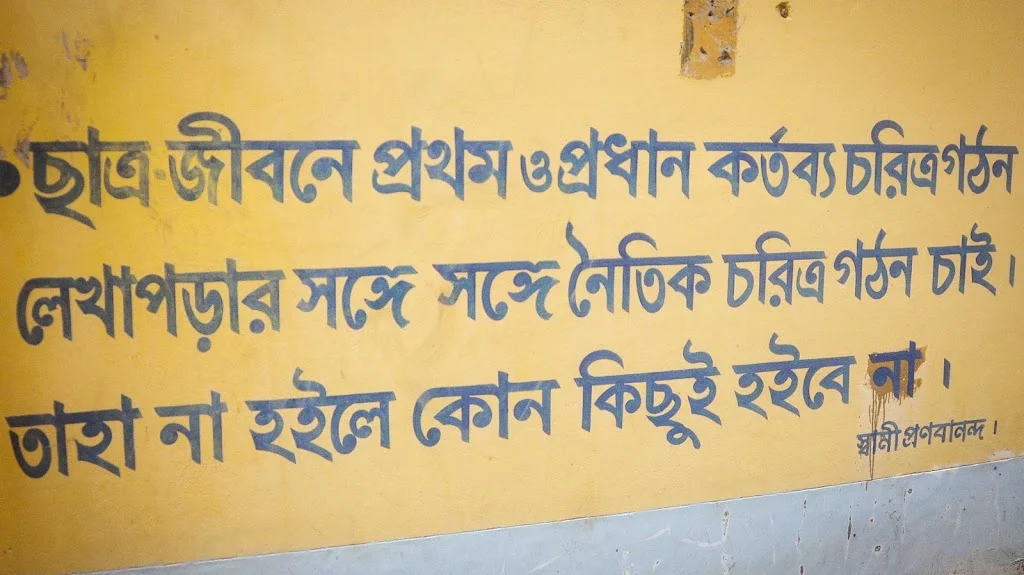 ছাত্র-জীবনে প্রথম ও প্রধান কর্তব্য চরিত্রগঠন
লেখাপড়ার সঙ্গে সঙ্গে নৈতিক চরিত্র গঠন চাই।
তাহা না হইলে কোন কিছুই হইবে না।
স্বামী প্রণবানন্দ।